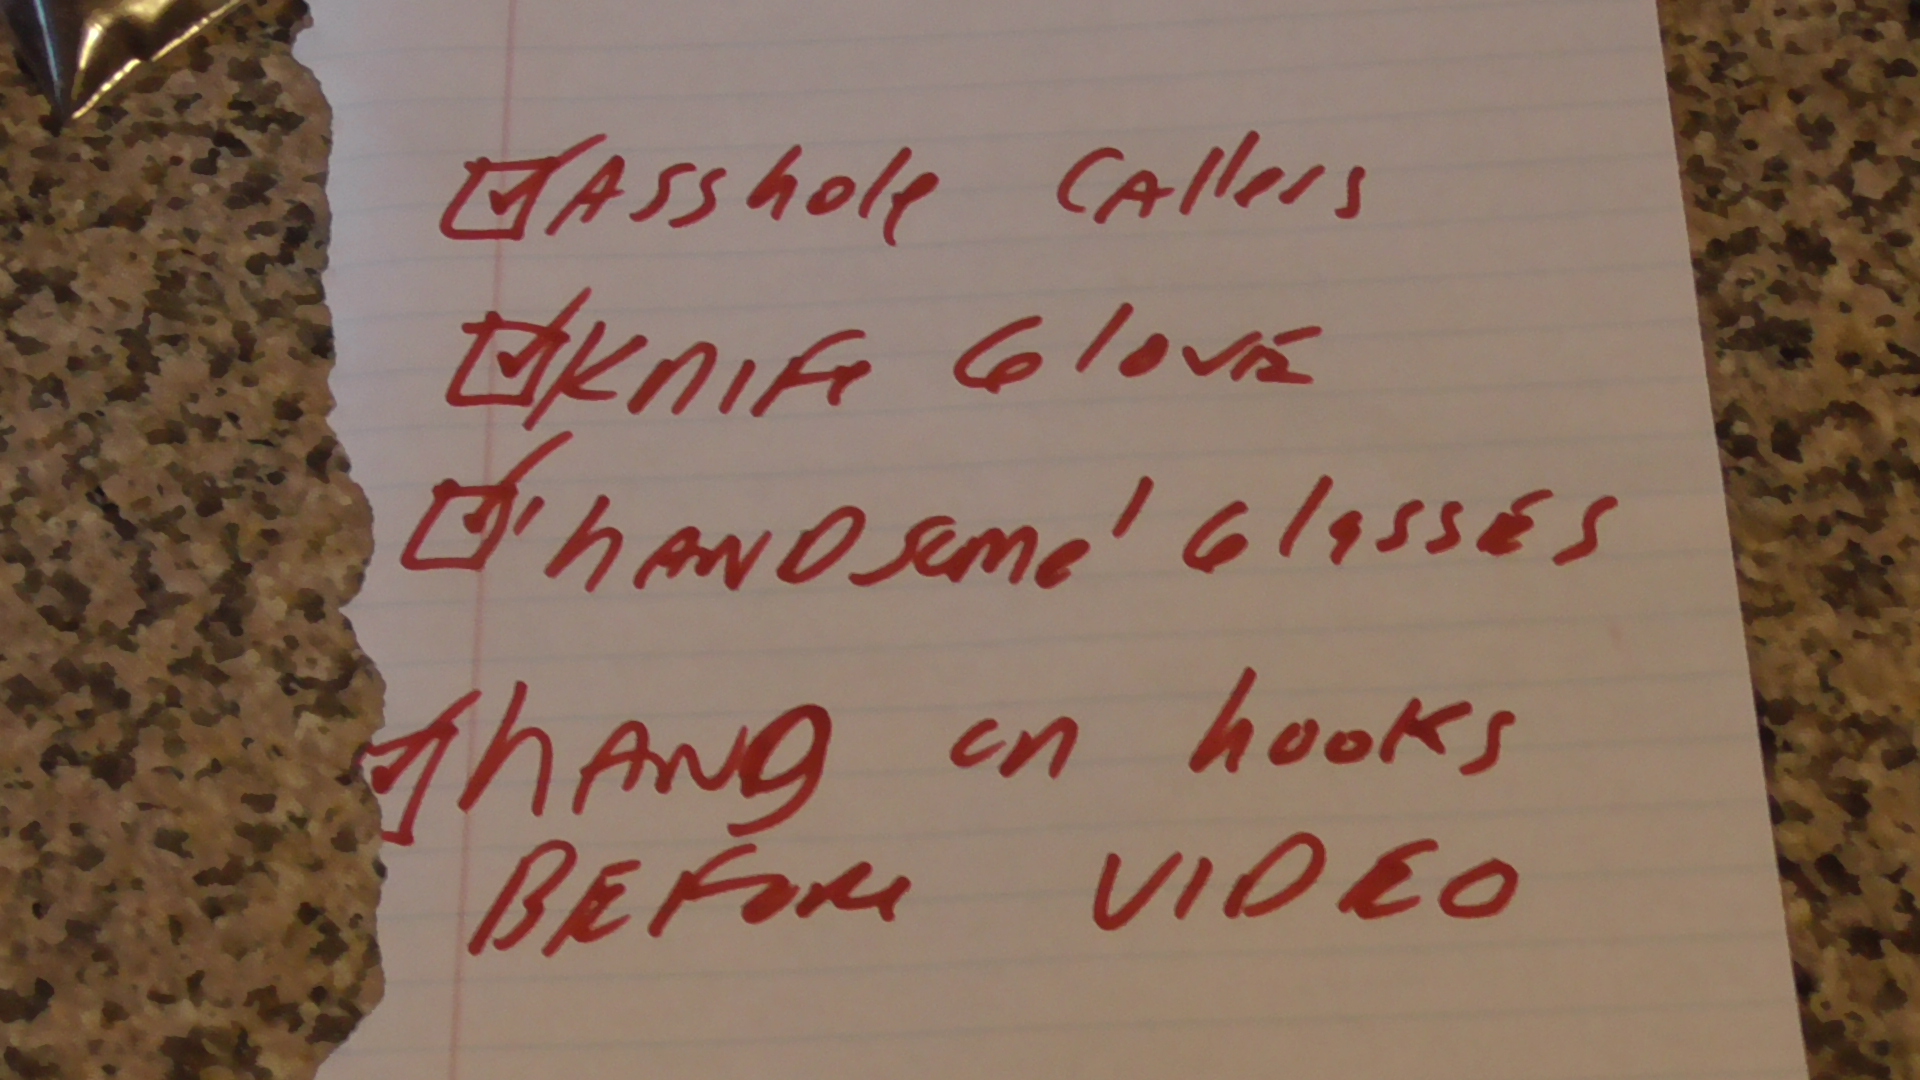 ☑ Asshole CAllers
☑ KnIFe GlovE
☑ 'hANDsome' GlAssEs
☑ hANg on hooks
BEFore VIDEO